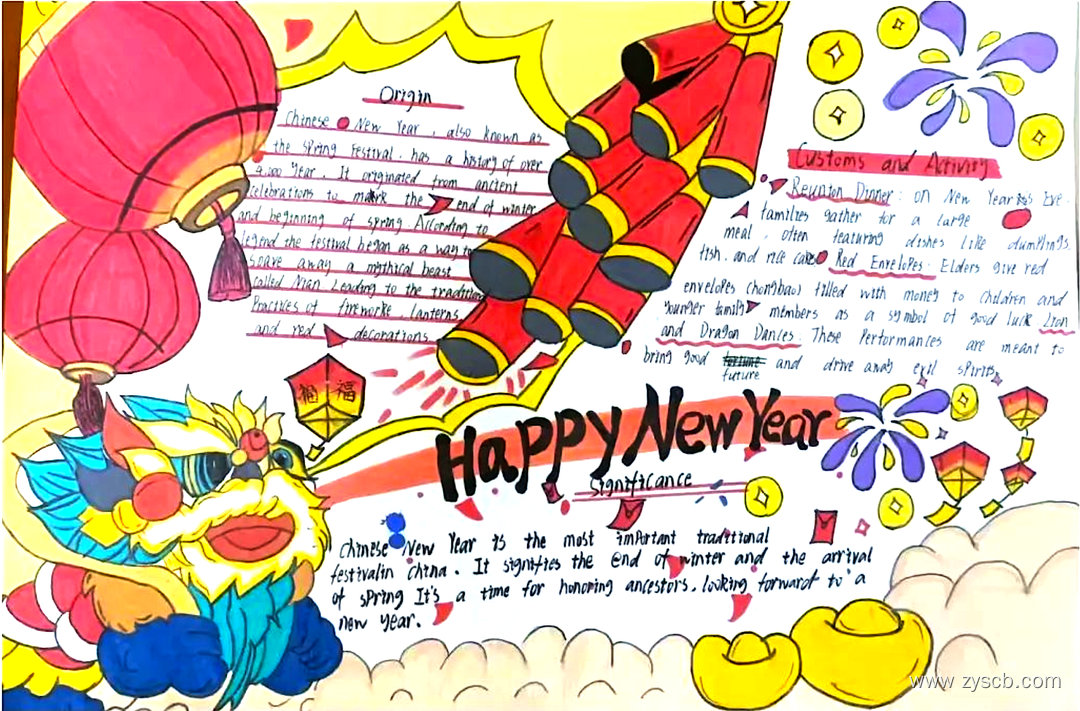 Origin
Chinese New Year, also known as
the Spring Festival. has a history of over
4,000 year. It originated from ancient
celebrations to mark the end of winter
and beginning of spring. According to
legend the festival began as a way to
scare away a mythical beast
called Nian Leading to the tradition
Practices of fireworke, lanterns,
and red decorations.
Customs and Activity
Reunion Dinner: on New Year's Eve.
families gather for a large
meal, often featuring dishes like dumplings,
fish, and rice cakes Red Envelopes: Elders give red
envelopes (hongbao) filled with money to children and
younger family members as a symbol of good luck Lion
and Dragon Dances. These Performances are meant to
bring good future and drive away evil spirits.
福 福
Happy New Year
Significance
Chinese New Year is the most important traditional
festivalin China. It signifies the end of winter and the arrival
of spring It's a time for honoring ancestors, looking forward to a
new year.
www.zyscb.com